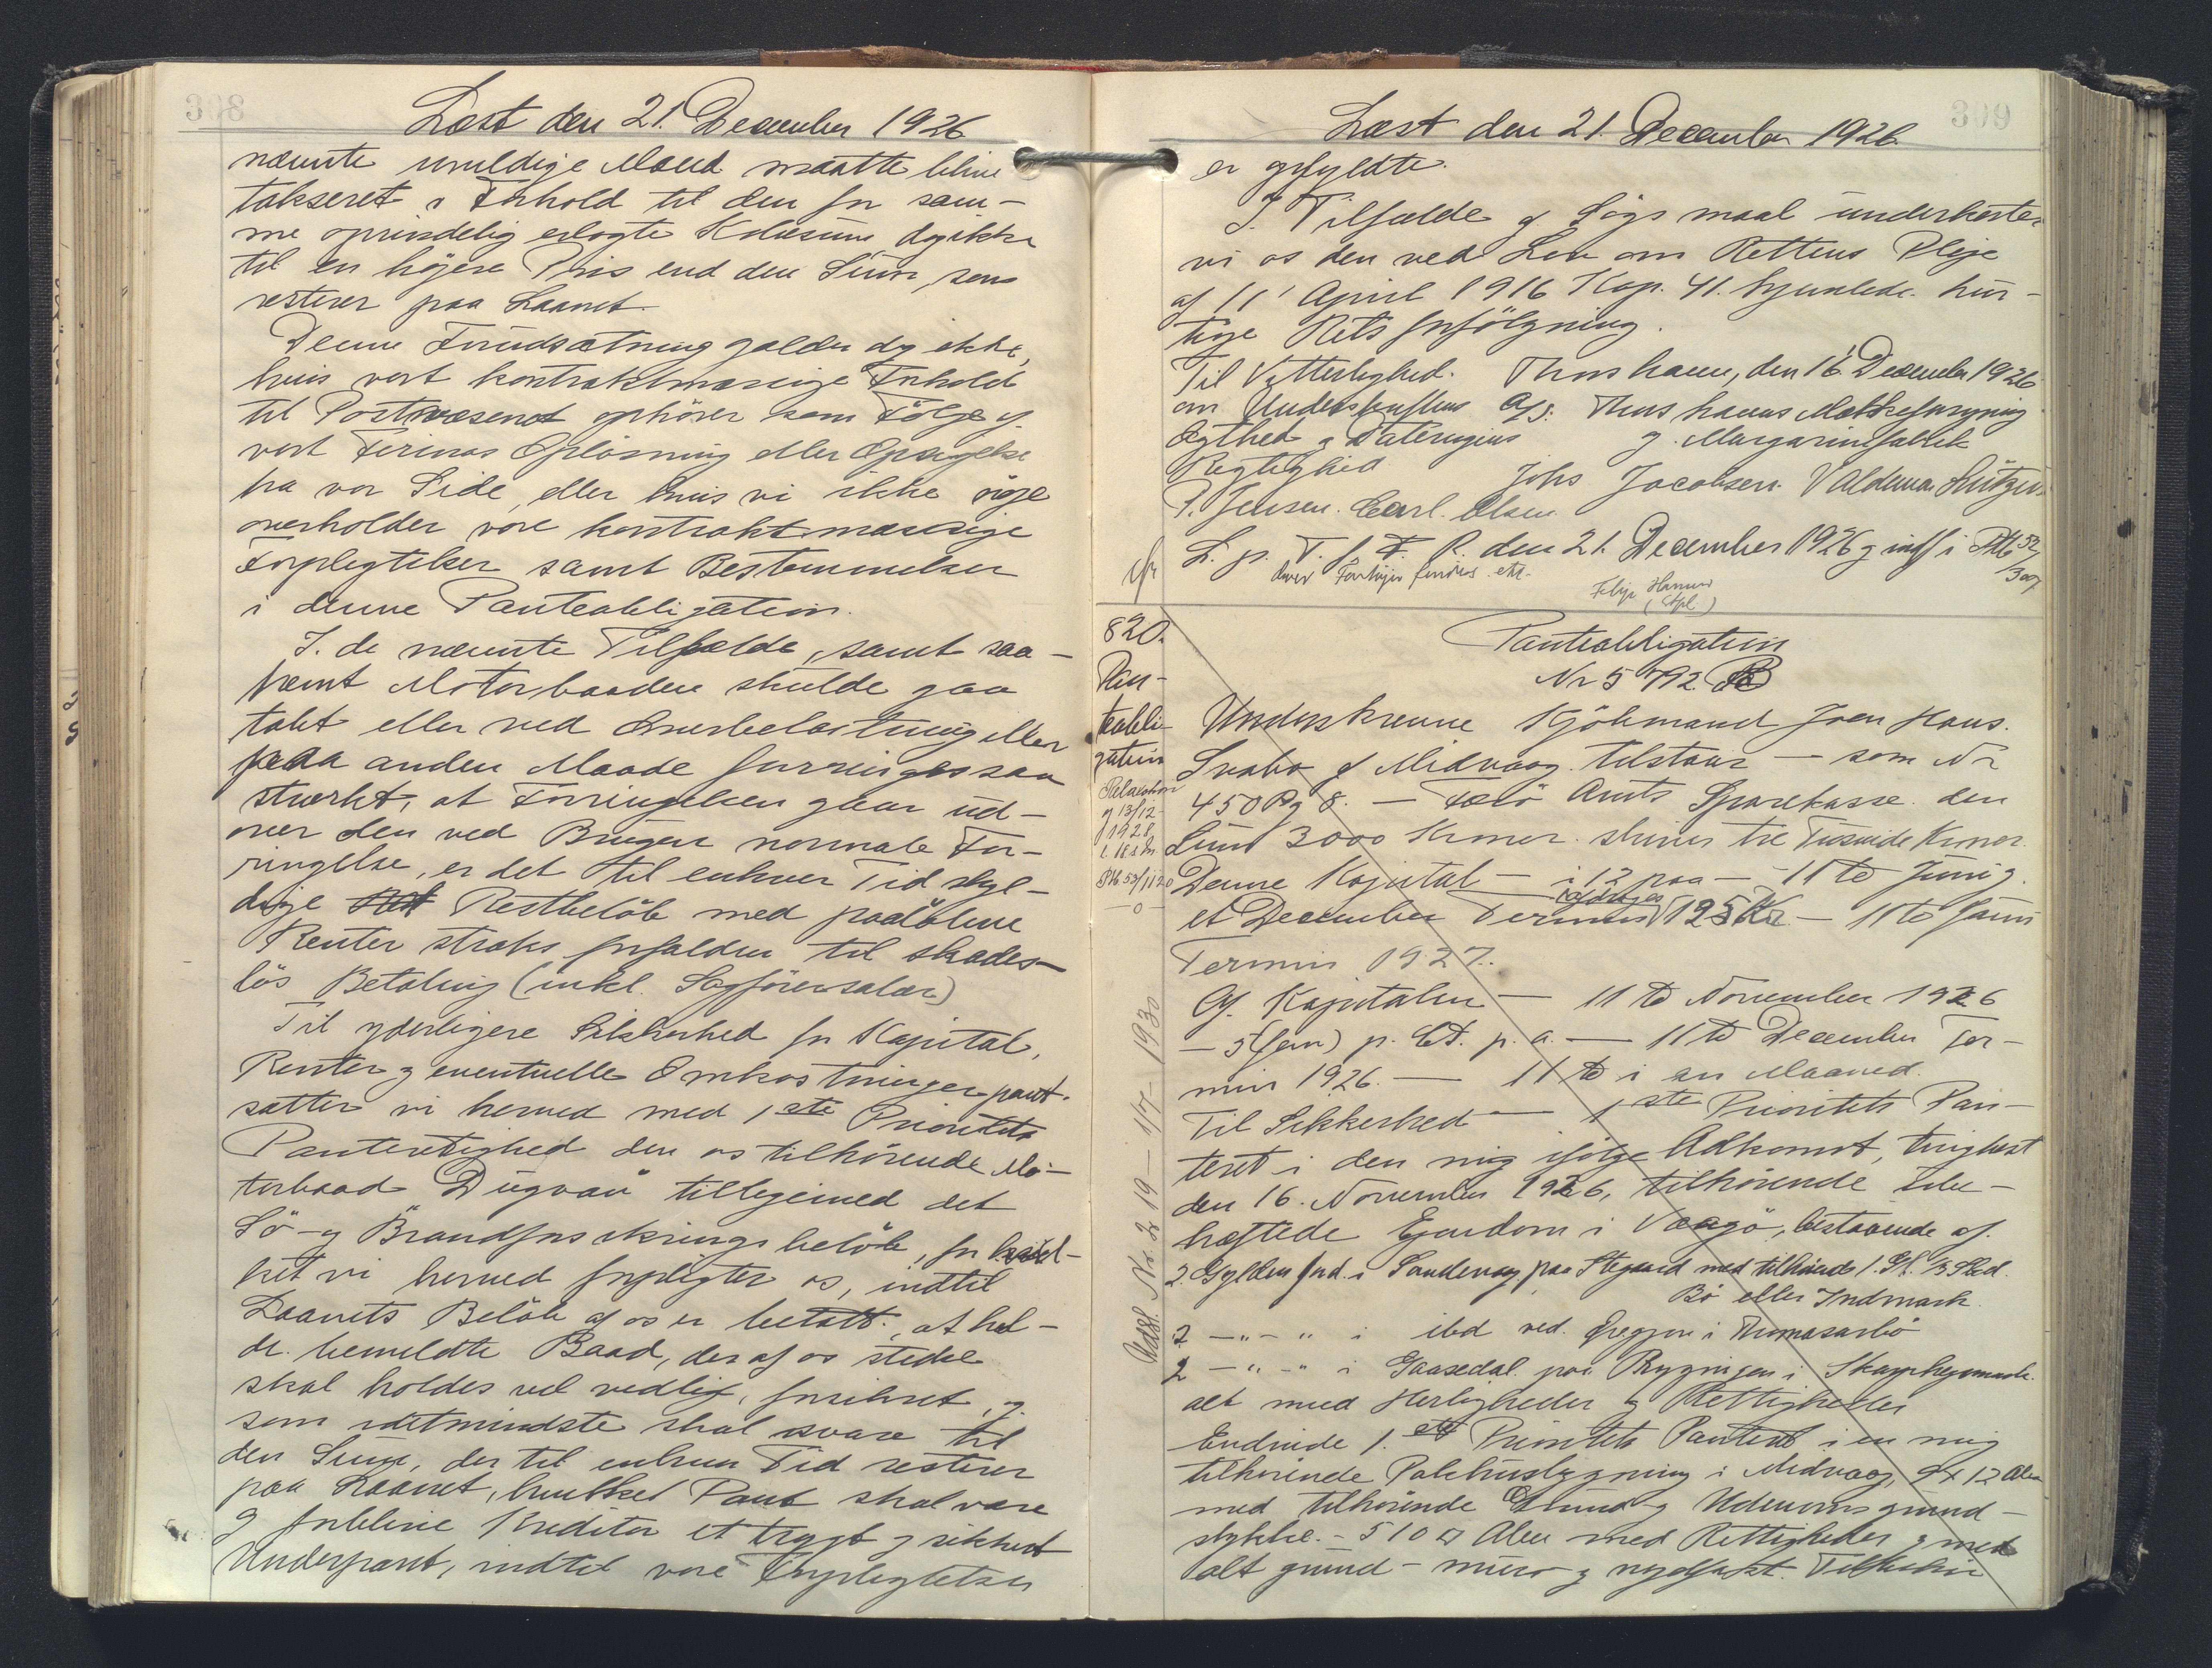 Læst den 21. December 1926
nævnte uvildige Mænd maatte blive
takseret i Forhold til den for sam-
me oprindelig erlagte Købesum dog ikke
til en højere Pris end den Sum, som
resterer paa Laanet.
Denne Forudsætning gælder dog ikke,
hvis vort kontraktmæssige Forhold
til Postvæsenet ophører som Følge af
vort Firmas Opløsning eller Opsigelse
fra vor Side, eller hvis vi ikke nøje
overholder vore kontraktmæssige
Forpligtelser samt Bestemmelser
i denne Panteobligation.
I de nævnte Tilfælde, samt saa-
fremt Motorbaaden skulde gaa
tabt eller ved Overbelastning eller
paa anden Maade forringes saa
stærkt, at Forringelsen gaar ud-
over den ved Brugen normale For-
ringelse, er det til enhver Tid skyl-
dige Restbeløb med paaløbne
Renter straks forfalden til skades-
løs Betaling (inkl. Sagførersalær)
Til yderligere Sikkerhed for Kapital,
Renter og eventuelle Omkostninger pant-
sætter vi herved med 1ste Prioritets
Panteretighed den os tilhørende Mo-
torbaad Dugvan tilligemed det
Sö- og Brandforsikringsbeløb, for hvil-
ket vi herved forpligter os, indtil
Laanets Beløb af os er betalt, at hol-
de bemeldte Baad, der af os stedse
skal holdes vel vedlige, forsikret, og
som idetmindste skal svare til
den Sum, der til enhver Tid resterer
paa Laanet, hvilket Pant skal være
og forblive Kreditor et trygt og sikkert
Underpant, indtil vore Forpligtelser
Læst den 21. December 1926
er opfyldte.
I Tilfælde af Søgsmaal underkaster
vi os den ved Lov om Rettens Pleje
af 11' April 1916 Kap. 41. hjemlede hur-
tige Retsforfølgning.
Til Vitterlighed Thorshavn, den 16' December 1926
om Underskriftens A/S. Thorshavns Mælkeforsyning
Ægthed og Dateringens og Margarinefabrik
Rigtighed Johs Jacobsen. Valdemar Lützen
P. Jensen. Carl Olsen
L. p. T. f. F. R. den 21. December 1926 og indf i Ptb 52/
307
820.
Pan-
teobli-
gation
og 13/12-
1928
Ptb 53/1120
- o -
Udsl. Nr. 219 - 1/7 - 1930
Panteobligation
Nr 5792 B
Underskrevne Kjøbmand Joen Hans.
Svabo af Midvaag tilstaar — som Nr
450 Pg 8. — Færö Amts Sparekasse den
Sum 3000 Kroner skriver tre Tusinde Kroner.
Denne Kapital — i 12 paa — 11te Juni og
et December Termin afdrages 125 Kr — 11te Juni
Termin 1927.
Af Kapitalen — 11te November 1926
— 5 (fem) p. Ct. p. a. — 11te December Ter-
min 1926. — 11te i en Maaned.
Til Sikkerhed — 1ste Prioritets Pan-
teret i den mig ifølge Adkomst, tinglæst
den 16. November 1926, tilhørende
hæftede Ejendom i Vaagö, bestaaende af.
2 Gylden Jord i Sandevaag, paa Stegaard med tilhørende 1. Gl. 1/3 Skd.
Bö eller Indmark.
2 —"—" i ibd ved i Thomasarbö
2 —"—" i Gaasedal. paa Bygningen i
alt med Herligheder og Rettigheder
Endvide 1. ste Prioritets Panteret i en mig
tilhørende Pakhusbygning i Midvaag, 9 x 12 Alen
med tilhørende Grund og Udenomsgrund-
stykke - 510 □ Alen med Rettigheder og med
alt grund- mur- og nagelfast Tilbehør